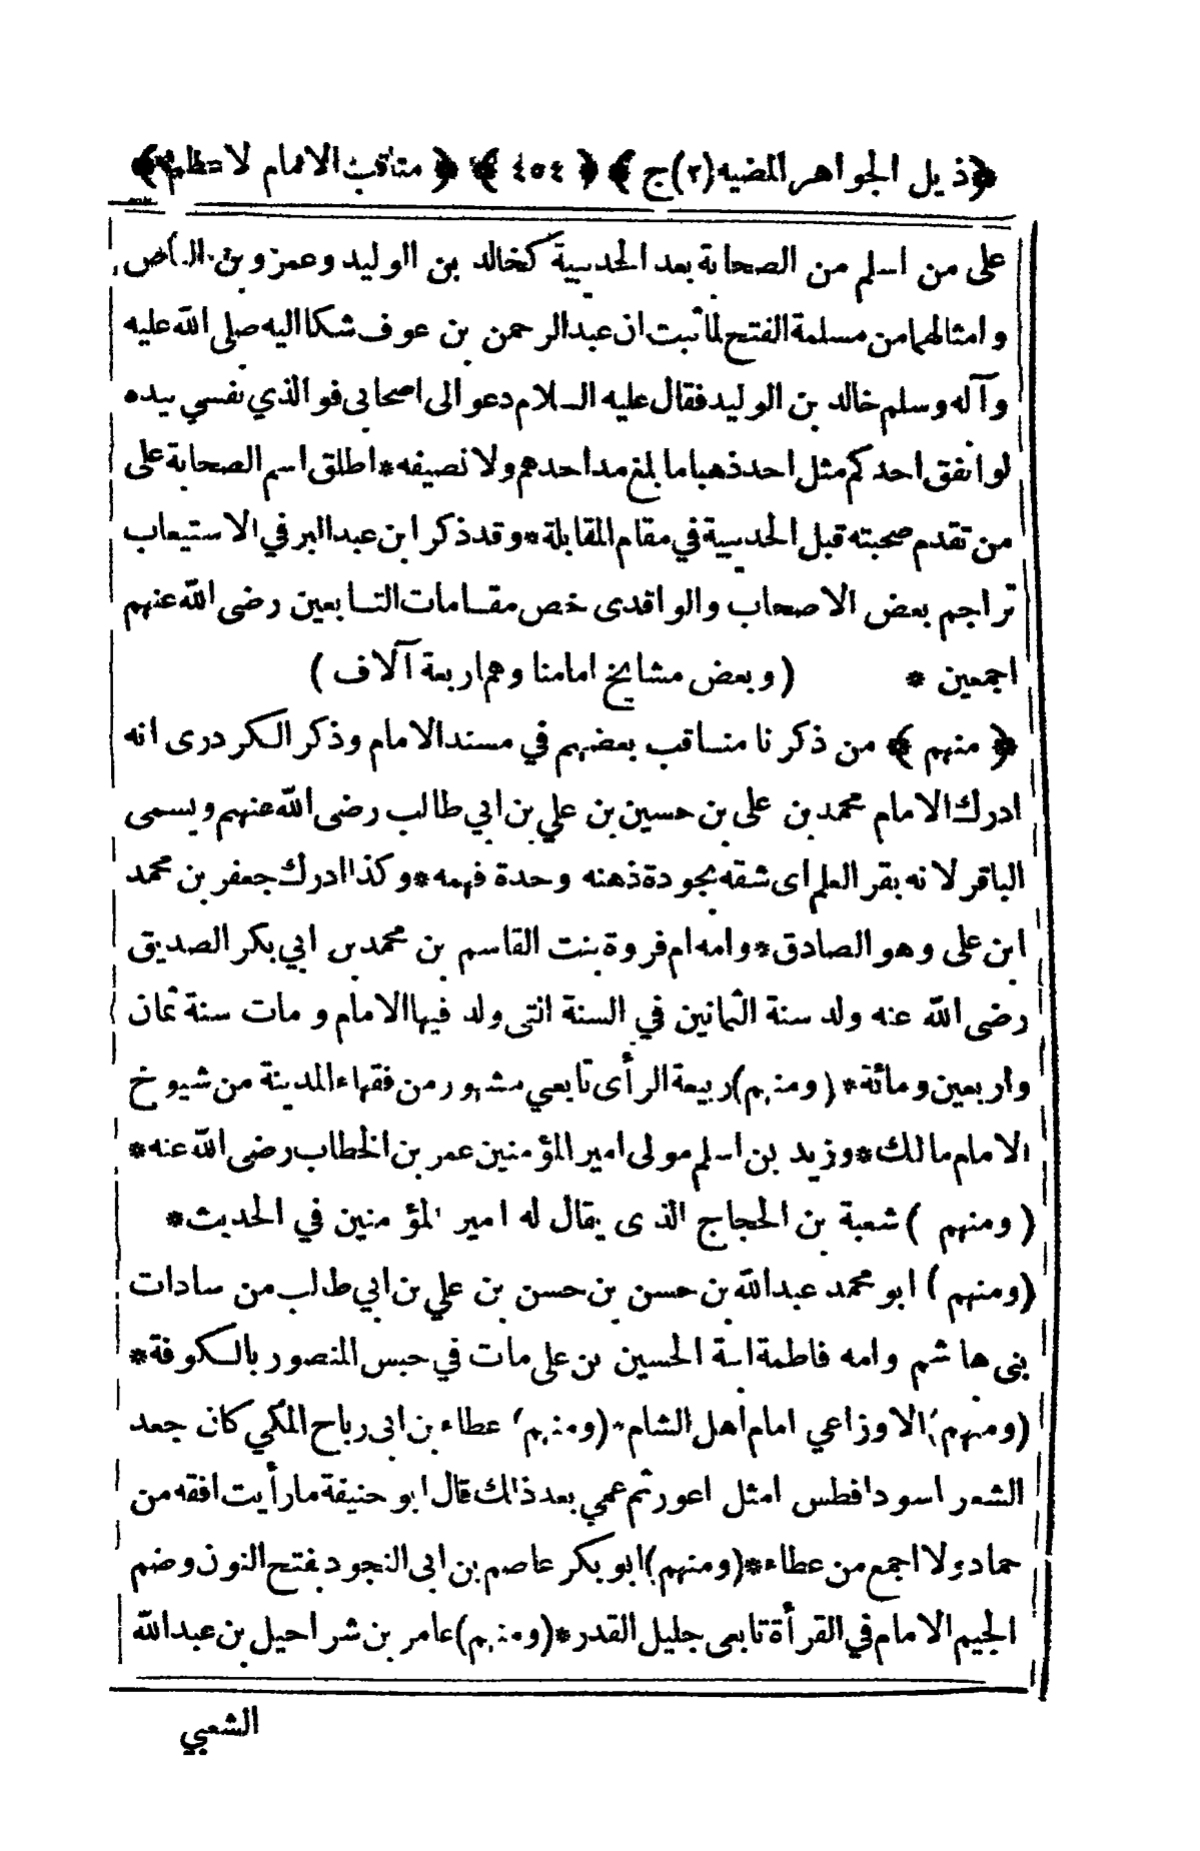 ﴿ذيل الجواهر المضيه(٢)ج﴾ ﴿٤٥٤﴾ ﴿مناقب الامام الاعظم﴾
على من اسلم من الصحابة بعد الحديبية كخالد بن الوليد وعمرو بن العاص
و امثالهما من مسلمة الفتح لما ثبت ان عبد الرحمن بن عوف شكا اليه صلى الله عليه
وآله وسلم خالد بن الوليد فقال عليه السلام دعو الى اصحابى فو الذي نفسي بيده
لو انفق احدكم مثل احد ذهبا ما بلغ مد احدهم ولا نصيفه*اطلق اسم الصحابة على
من تقدم صحبته قبل الحديبية في مقام المقابلة*وقد ذكر ابن عبد البر في الاستيعاب
تراجم بعض الاصحاب والواقدى خص مقامات التابعين رضى الله عنهم
اجمعين * (وبعض مشايخ امامنا وهم اربعة آلاف)
﴿منهم﴾ من ذكر نا مناقب بعضهم في مسند الامام وذكر الكردرى انه
ادرك الامام محمد بن على بن حسين بن علي بن ابي طالب رضى الله عنهم ويسمى
الباقر لانه بقر العلم اى شقه بجودة ذهنه وحدة فهمه*وكذا ادرك جعفر بن محمد
ابن على وهو الصادق*وامه ام فروة بنت القاسم بن محمد بن ابي بكر الصديق
رضى الله عنه ولد سنة الثمانين في السنة التى ولد فيها الامام و مات سنة ثمان
واربعين ومائة*(ومنهم)ربيعة الرأى تابعي مشهور من فقهاء المدينة من شيوخ
الامام مالك*وزيد بن اسلم مولى امير المؤمنين عمر بن الخطاب رضى الله عنه*
(ومنهم )شعبة بن الحجاج الذى يقال له امير المؤمنين في الحديث*
(ومنهم) ابو محمد عبد الله بن حسن بن حسن بن علي بن ابي طالب من سادات
بنى هاشم وامه فاطمة ابنة الحسين بن على مات في حبس المنصور بالكوفة*
(ومنهم)الاوزاعي امام اهل الشام*(ومنهم) عطاء بن ابى رباح المكي كان جعد
الشعر اسود افطس امثل اعور ثم عمي بعد ذالك قال ابو حنيفة ما رأيت افقه من
حماد ولا اجمع من عطاء*(ومنهم)ابو بكر عاصم بن ابى النجود بفتح النون وضم
الجيم الامام في القرأة تابعى جليل القدر*(ومنهم)عامر بن شراحيل بن عبد الله
الشعبي